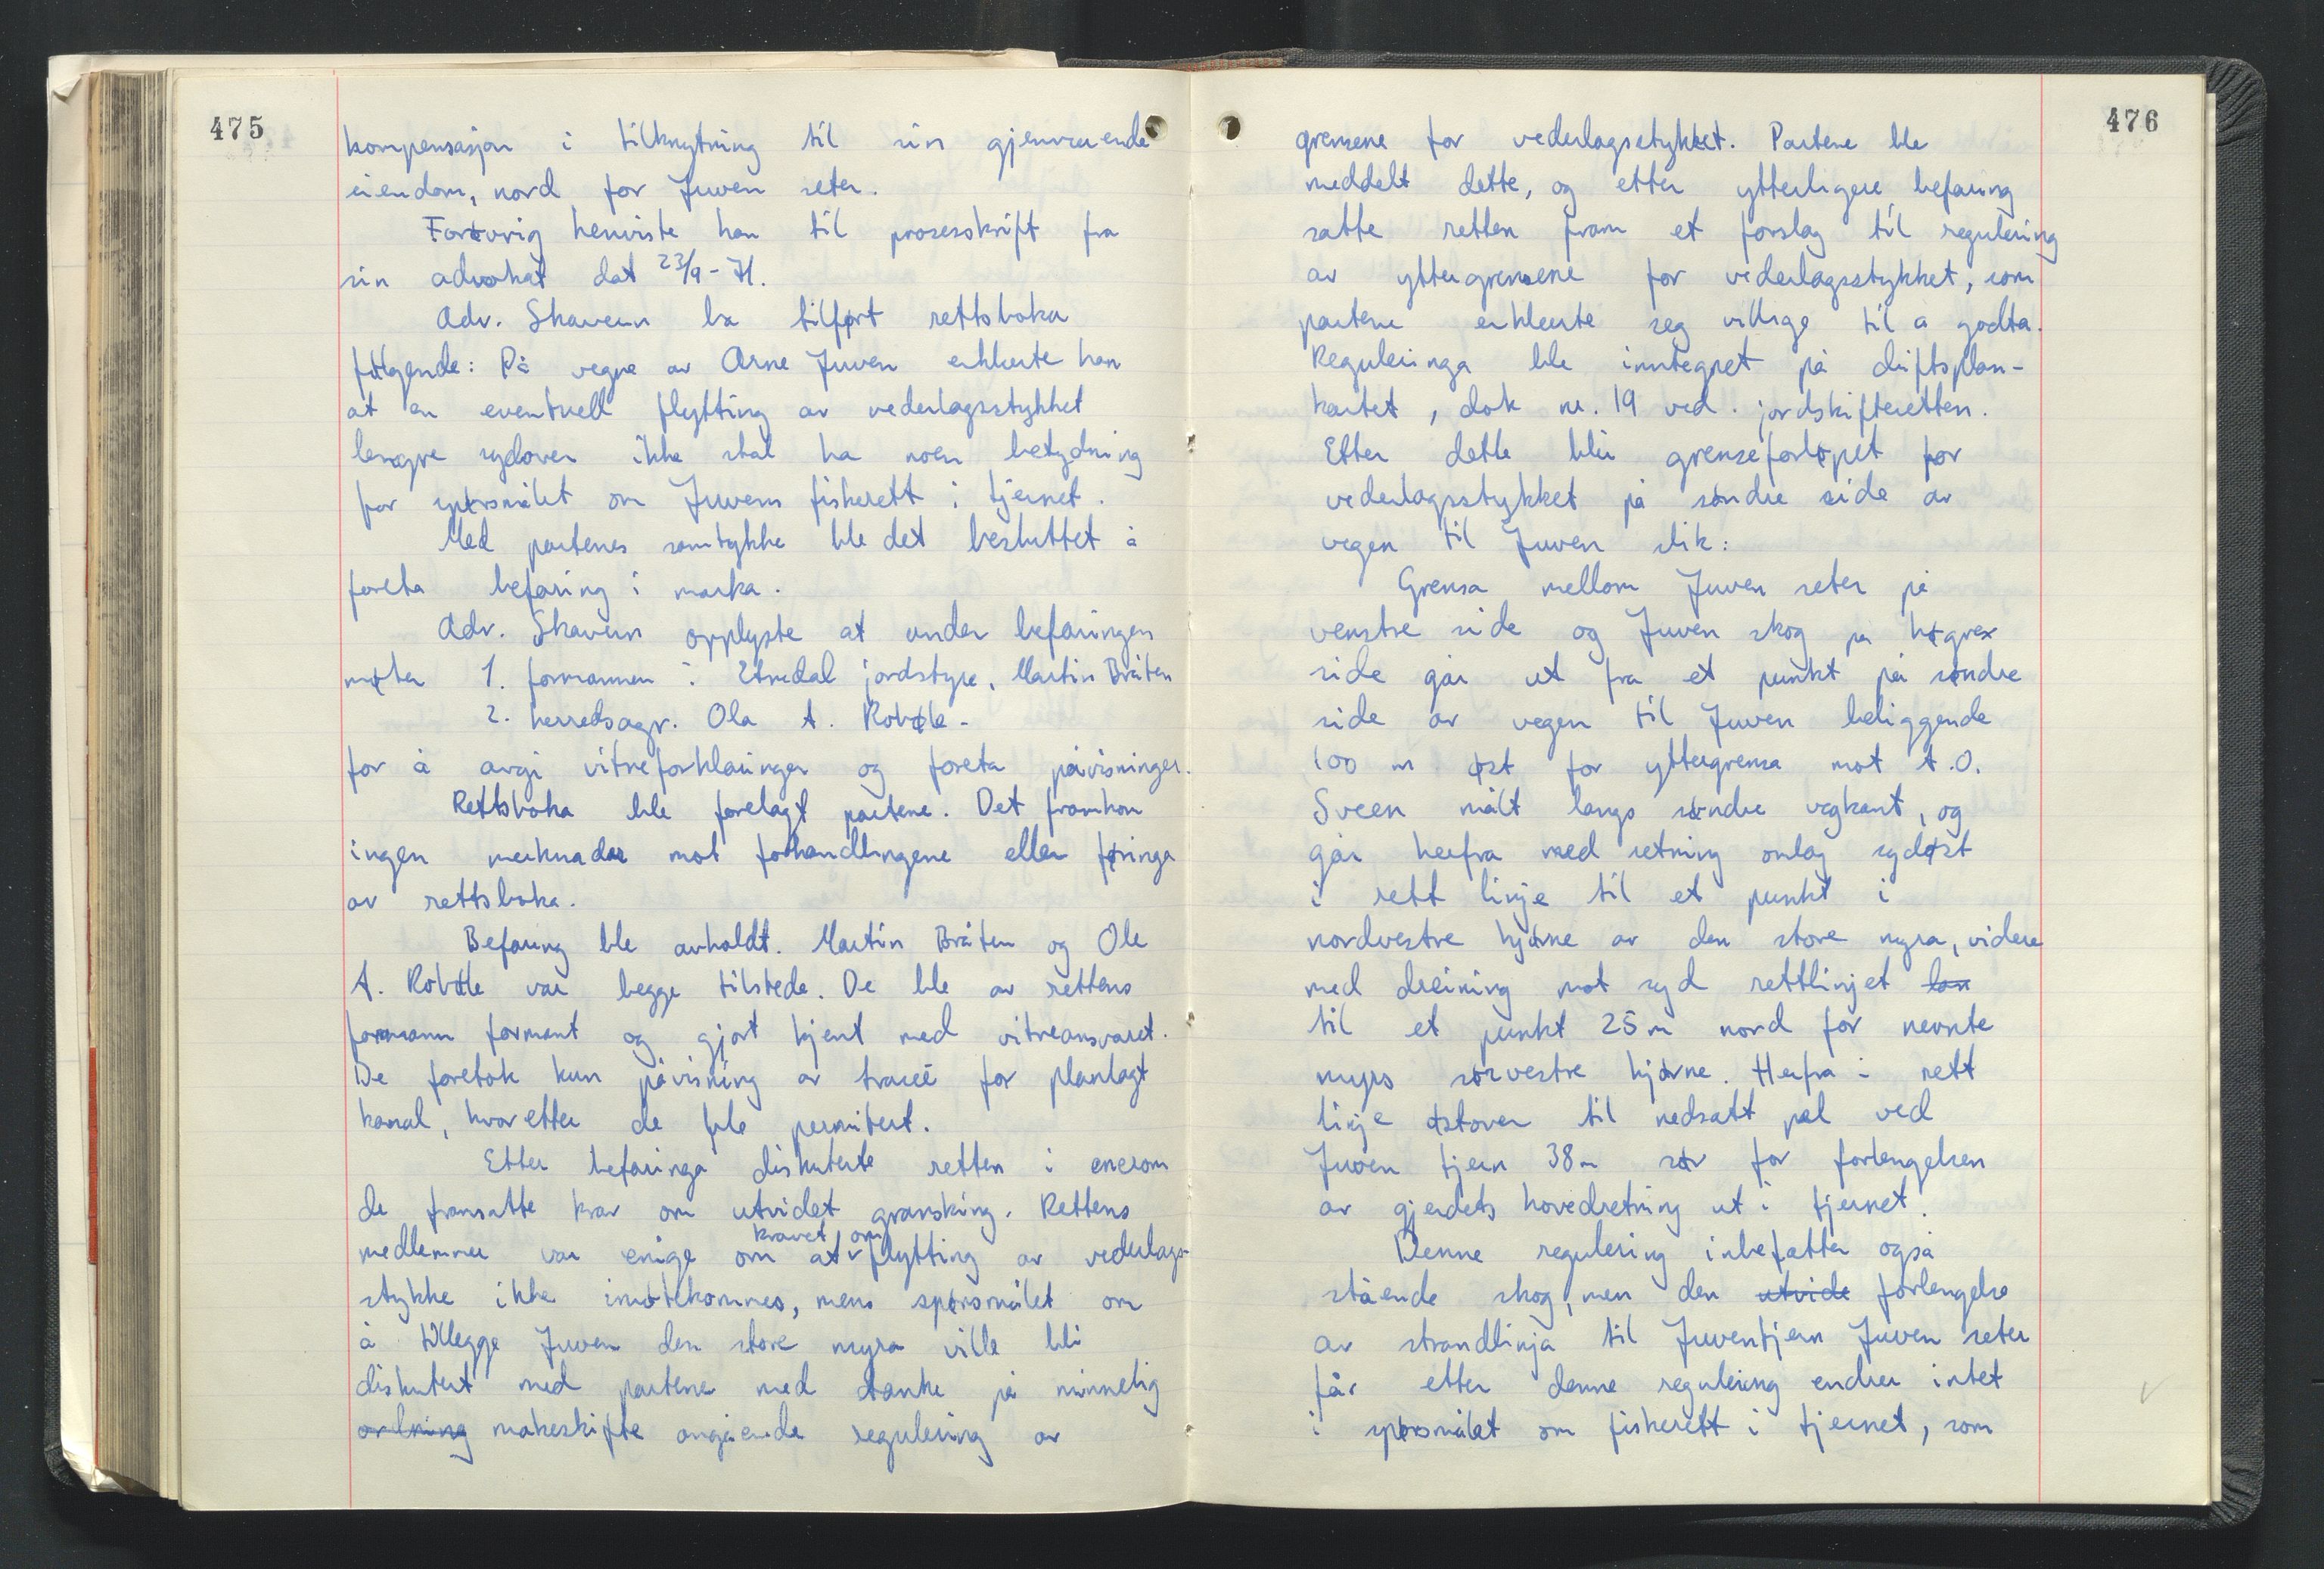 475
kompensasjon i tilknytning til sin gjenværende
eiendom, nord for Juven seter.
Forøvrig henviste han til prosesskrift fra
sin advokat dat 23/9-71.
Adv. Skavern ba tilført rettsboka
følgende: På vegne av Arne Juven erklærte han
at en eventuell flytting av vederlagsstykket
lengre sydover ikke skal ha noen betydning
for spørsmålet om Juvens fiskerett i tjernet.
Med partenes samtykke ble det besluttet å
foreta befaring i marka.
Adv. Skavern opplyste at under befaringen
møter 1. formannen i Etnedal jordstyre, Martin Bråten
2. herredsagr. Ola A. Robøle -
for å avgi vitneforklaringer og foreta påvisninger.
Rettsboka ble forelagt partene. Det framkom
ingen merknader mot forhandlingene eller føringa
av rettsboka.
Befaring ble avholdt. Martin Bråten og Ole
A. Robøle var begge tilstede. De ble av rettens
formann formant og gjort kjent med vitneansvaret.
De foretok kun påvisning av traceé for planlagt
kanal, hvoretter de ble permitert.
Etter befaringa diskuterte retten i enerom
de framsatte krav om utvidet gransking. Rettens
medlemmer var enige om at kravet om flytting av vederlags-
stykke ikke imøtekommes, mens spørsmålet om
å tillegge Juven den store myra ville bli
diskutert med partene med tanke på minnelig
ordning makeskifte angående regulering av
476
grensene for vederlagsstykket. Partene ble
meddelt dette, og etter ytterligere befaring
satte retten fram et forslag til regulering
av yttergrensene for vederlagsstykket, som
partene erklærte seg villige til a godta.
Reguleringa ble inntegnet på driftsplan-
kartet, dok nr. 19 ved jordskifteretten.
Etter dette blir grenseforløpet for
vederlagsstykket på søndre side av
vegen til Juven slik:
Grensa mellom Juven seter på
venstre side og Juven skog på høgre
side går ut fra et punkt på søndre
side av vegen til Juven beliggende
100 m øst for yttergrensa mot A.O.
Sveen målt langs søndre vegkant, og
går herfra med retning omlag sydøst
i rett linje til et punkt i
nordvestre hjørne av den store myra, videre
med dreining mot syd rettlinjet lan
til et punkt 25 m nord for nevnte
myrs sørvestre hjørne. Herfra i rett
linje østover til nedsatt pel ved
Juven tjern 38 m sør for forlengelsen
av gjerdets hovedretning ut i tjernet.
Denne regulering inbefatter også
stående skog, men den utvide forlengelse
av strandlinja til Juventjern Juven seter
får etter denne regulering endrer intet
i spørsmålet om fiskerett i tjernet, som